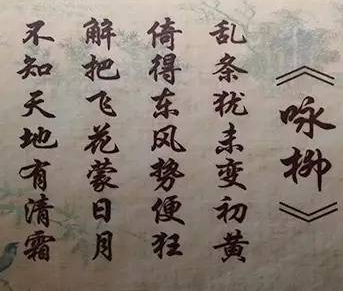 《咏柳》
乱条犹未变初黄
倚得东风势便狂
解把飞花蒙日月
不知天地有清霜